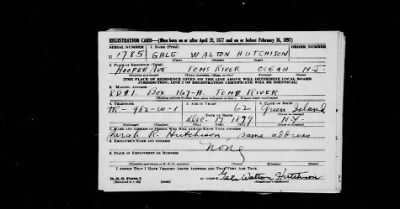 REGISTRATION CARD—(Men born on or after April 28, 1877 and on or before February 16, 1897)
SERIAL NUMBER 1. NAME (Print) ORDER NUMBER
U 1785 GALE WALTON HUTCHISON
2. PLACE OF RESIDENCE (Print)
HOOPER AVE TOMS RIVER OCEAN N.J.
[THE PLACE OF RESIDENCE GIVEN ON THE LINE ABOVE WILL DETERMINE LOCAL BOARD
JURISDICTION; LINE 2 OF REGISTRATION CERTIFICATE WILL BE IDENTICAL]
3. MAILING ADDRESS
RD#1. Box 167-A. TOMS RIVER
4. TELEPHONE 5. AGE IN YEARS 6. PLACE OF BIRTH
62 Green Island
DATE OF BIRTH
Dec. 17 1879 N.Y.
7. NAME AND ADDRESS OF PERSON WHO WILL ALWAYS KNOW YOUR ADDRESS
Sarah R. Hutchison, same address
8. EMPLOYER'S NAME AND ADDRESS
None
9. PLACE OF EMPLOYMENT OR BUSINESS
I AFFIRM THAT I HAVE VERIFIED ABOVE ANSWERS AND THAT THEY ARE TRUE.
D. S. S. Form 1
Gale Walton Hutchison